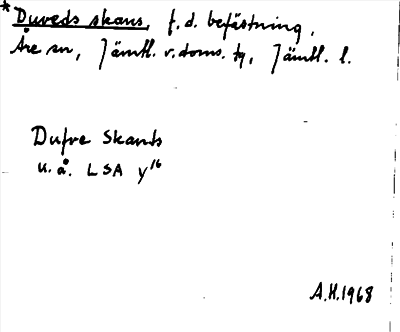 * Duveds skans, f.d. befästning,
Åre sn, Jämtl. v. doms. tg, Jämtl. l.
Dufve Skants
u.å. LSA y16
A.H. 1968